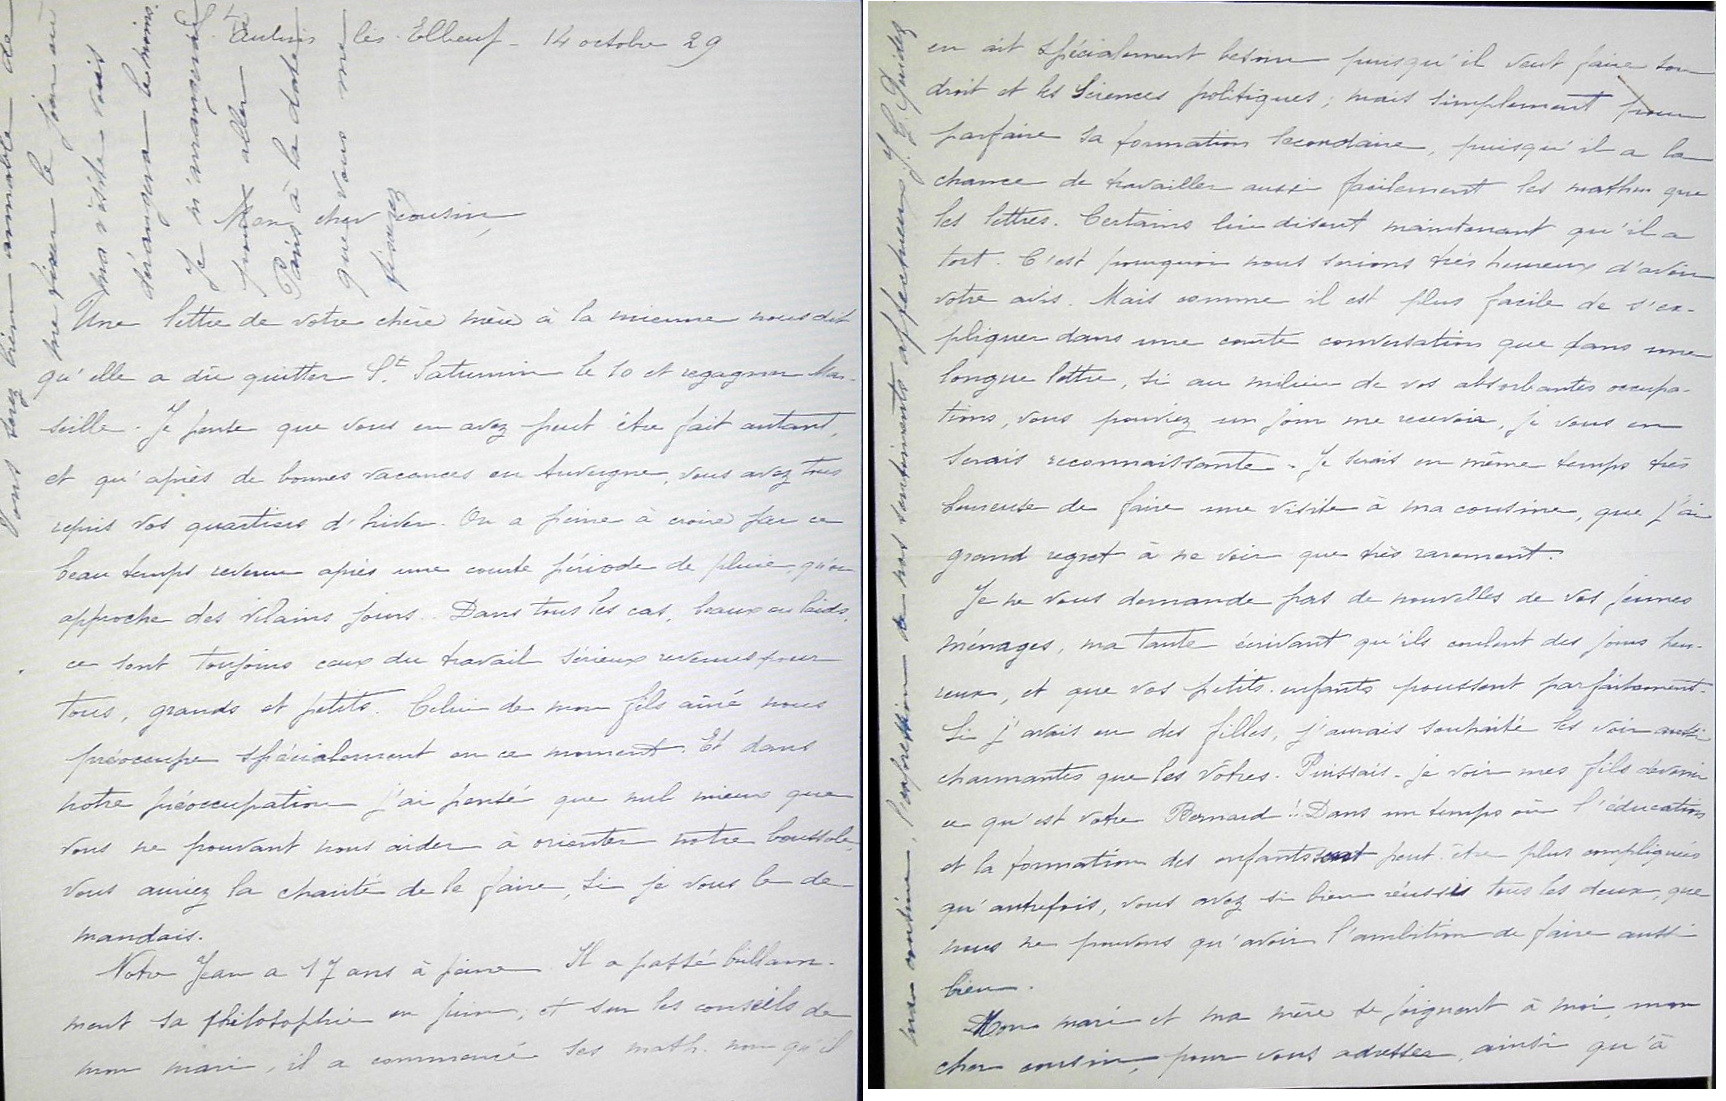 St Aubin les Elbeuf - 14 octobre 29
Mon cher cousin,
Une lettre de votre chère mère à la mienne nous dit
qu'elle a dû quitter St. Saturnin le 10 et regagner Mar-
seille. Je pense que vous en avez peut être fait autant,
et qu'après de bonnes vacances en Auvergne, vous avez tous
repris vos quartiers d'hiver. On a peine à croire par ce
beau temps revenu après une courte période de pluie qu'on
approche des vilains jours. Dans tous les cas, beaux ou laids,
ce sont toujours ceux du travail sérieux revenus pour
tous, grands et petits. Celui de mon fils aîné nous
préoccupe spécialement en ce moment. Et dans
notre préoccupation j'ai pensé que nul mieux que
vous ne pouvant nous aider à orienter notre boussole,
vous auriez la charité de le faire, si je vous le de-
mandais.
Notre Jean a 17 ans à peine. Il a passé brillam-
ment sa philosophie en juin, et sur les conseils de
mon mari, il a commencé ses math. non qu'il
en ait spécialement besoin puisqu'il veut faire son
droit et les Sciences politiques; mais simplement pour
parfaire sa formation secondaire, puisqu'il a la
chance de travailler aussi facilement les maths que
les lettres. Certains lui disent maintenant qu'il a
tort. C'est pourquoi nous serions très heureux d'avoir
votre avis. Mais comme il est plus facile de s'ex-
pliquer dans une courte conversation que dans une
longue lettre, si au milieu de vos absorbantes occupa-
tions, vous pouviez un jour me recevoir, je vous en
serais reconnaissante. Je serais en même temps très
heureuse de faire une visite à ma cousine, que j'ai
grand regret à ne voir que très rarement.
Je ne vous demande pas de nouvelles de vos jeunes
ménages, ma tante écrivant qu'ils coulent des jours heu-
reux, et que vos petits-enfants poussent parfaitement.
Si j'avais eu des filles, j'aurais souhaité les voir aussi
charmantes que les vôtres. Puissais-je voir mes fils devenir
ce qu'est votre Bernard!! Dans un temps où l'éducation
et la formation des enfants sont peut être plus compliquées
qu'autrefois, vous avez si bien réussis tous les deux, que
nous ne pouvons qu'avoir l'ambition de faire aussi
bien.
Mon mari et ma mère se joignent à moi, mon
cher cousin, pour vous adresser, ainsi qu'à
ma cousine, l'expression de nos sentiments affectueux.
Vous serez bien aimable de
me fixer le jour où
ma visite vous
dérangera le moins.
Je m'arrangerai
pour aller à
Paris à la date
que vous me
fixerez